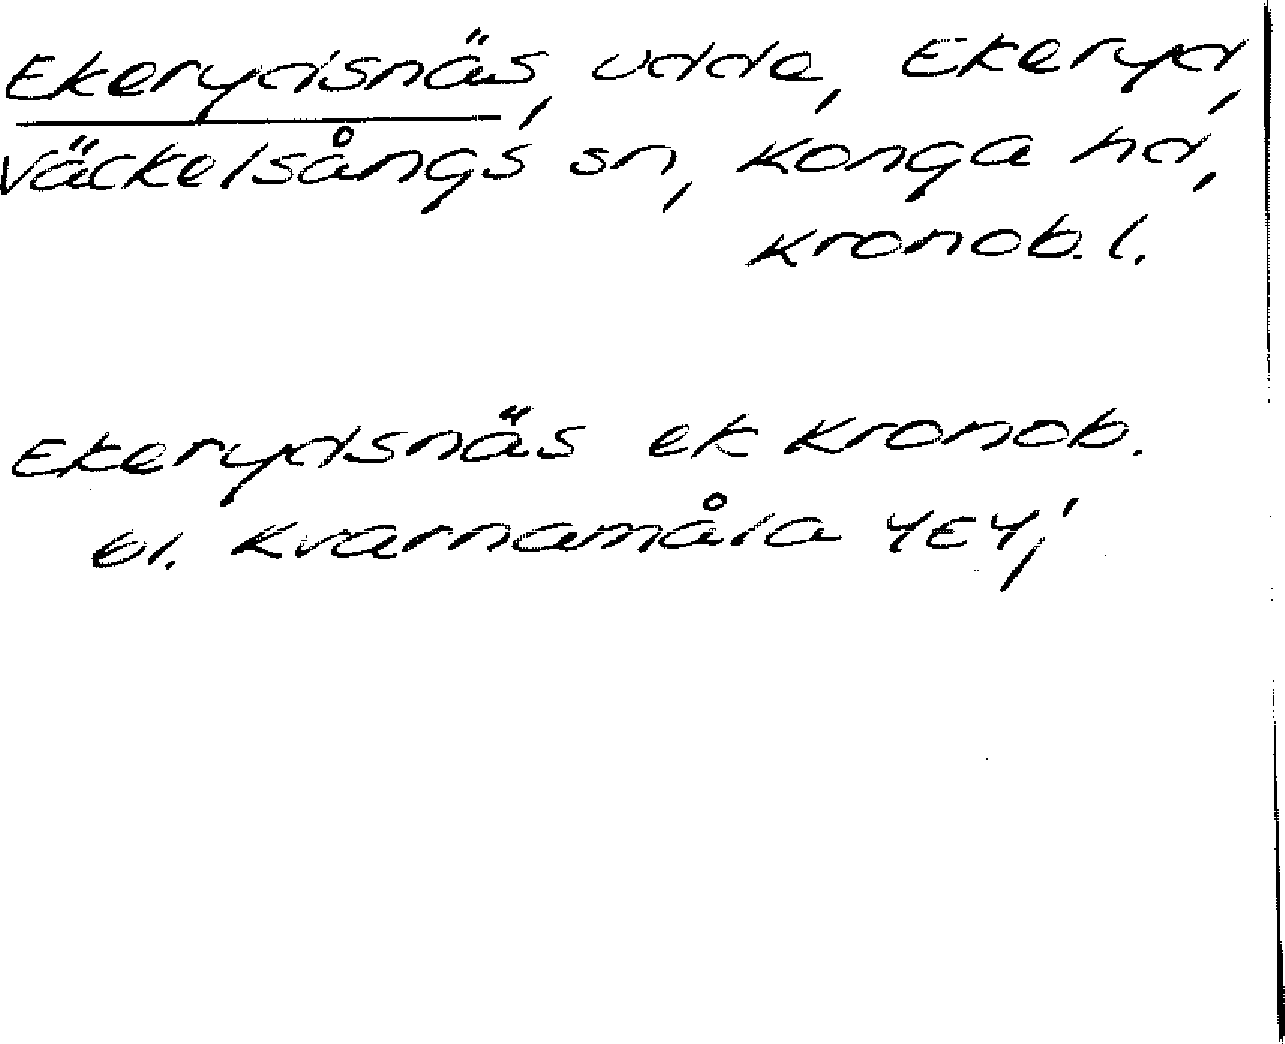 Ekerydsnäs, udde, Ekeryd,
Väckelsångs sn, Konga hd,
Kronob. l.
Ekerydsnäs ek Kronob.
bl. Kvarnamåla 4E4,'